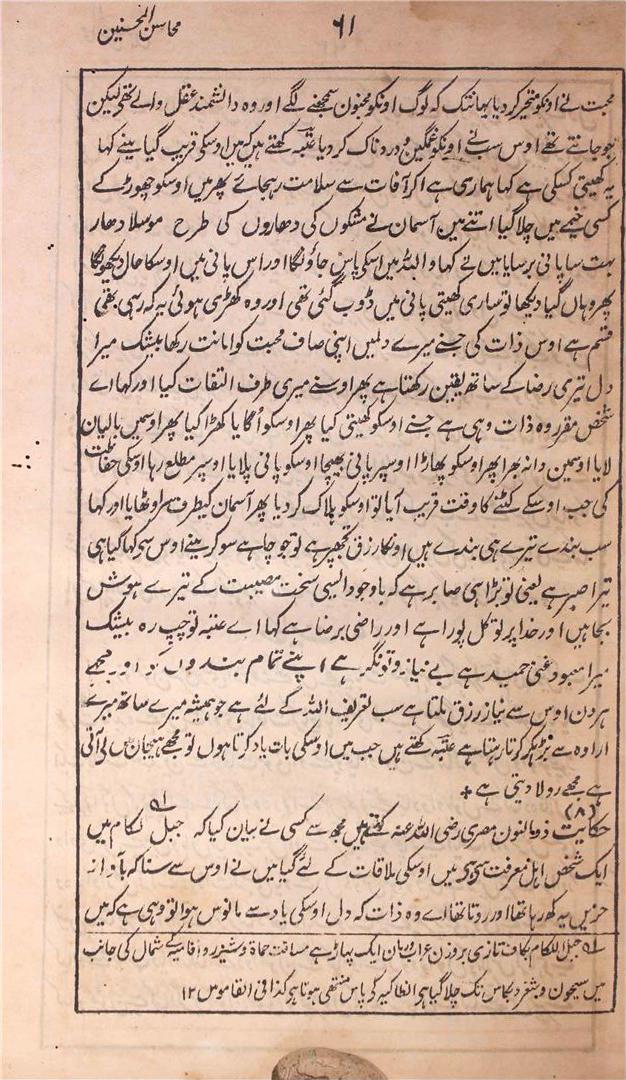 محاسن المحسنین
۶۱
محبت نے اونکو متحیر کر دیا یہانتک کہ لوگ اونکو مجنون سمجھنے لگے اور وہ دانشمند عقل والے تھے لیکن
جو جانتے تھے اوس سب نے اونکو غمگین و دردناک کر دیا عتبہ کہتے ہیں کہ میں اوسکی قریب گیا مینے کہا
یہ کھیتی کسکی ہے کہا ہماری ہے اگر آفات سے سلامت رہجائے پھر میں اوسکو چھوڑ کے
کسی خیمے میں چلا گیا اتنے مین آسمان نے مشکوں کی دھاروں کی طرح موسلا دھار
بہت سا پانی برسایا میں نے کہا واللہ میں اسکو پاس جاؤنگا اور اس پانی میں اوسکا حال دیکھونگا
پھر وہاں گیا دیکھا تو ساری کھیتی پانی میں ڈوب گئی تھی اور وہ کھڑی ہوئی یہ کہہ رہی تھی
قسم ہے اوس ذات کی جسنے میرے دلمیں اپنی صاف محبت کو امانت رکھا بیشک میرا
دل تیری رضا کے ساتھ یقین رکھتا ہے پھر اوسنے میری طرف التفات کیا اور کہا اے
شخص مقرر وہ ذات وہی ہے جسنے اوسکو کھیتی کیا پھر اوسکو اُگایا کھڑا کیا پھر اوسمیں بالیان
لایا اوسمین دانہ بھرا پھر اوسکو پھاڑا اوسپر پانی بھیجا اوسکو پانی پلایا اوسپر مطلع رہا اوسکی حفاظت
کی جب اوسکے کٹنے کا وقت قریب آیا تو اوسکو ہلاک کر دیا پھر آسمان کیطرف سر اوٹھایا اور کہا
سب بندے تیرے ہی بندے ہیں اونکا رزق تجھپر ہے تو جو چاہے سو کر مینے اوس سے کہا کیا ہی
تیرا صبر ہے یعنی تو بڑا ہی صابر ہے کہ باوجود ایسی سخت مصیبت کے تیرے ہوش
بجا ہیں اور خدا پر توکل پورا ہے اور راضی برضا ہے کہا اے عتبہ تو چپ رہ بیشک
میرا معبود غنی حمید ہے بے نیاز و تونگر ہے اپنے تمام بندوں سے اور مجھے
ہر دن اوس سے نیا رزق ملتا ہے سب تعریف اللہ کے لئے ہے جو ہمیشہ میرے ساتھ میرے
ارادہ سے بڑہکر کرتا رہتا ہے عتبہ کہتے ہیں جب میں اوسکی بات یاد کرتا ہوں تو مجھے ہیجان میں لے آتی
ہے مجھے رولا دیتی ہے
(۸)
حکایت ذوالنون مصری رضی اللہ عنہ کہتے ہیں مجھ سے کسی نے بیان کیا کہ جبل لکام میں
ایک شخص اہل معرفت سے ہیں میں اوسکی ملاقات کے لئے گیا میں نے اوس سے سنا کہ بآواز
حزیں یہ کہہ رہا تھا اور روتا تھا اے وہ ذات کہ دل اوسکی یاد سے مانوس ہوا تو وہی ہے کہ میں
جبل اللکام بکاف تازی بروزن غراب و رمان ایک پہاڑ ہے مسافت حماۃ و شیزر و افامیہ کے شمال کی جانب
میں سیحون و بکاس تک چلا گیا ہی انطاکیہ کے پاس منتہی ہوتا ہی کذا فی القاموس ۱۲